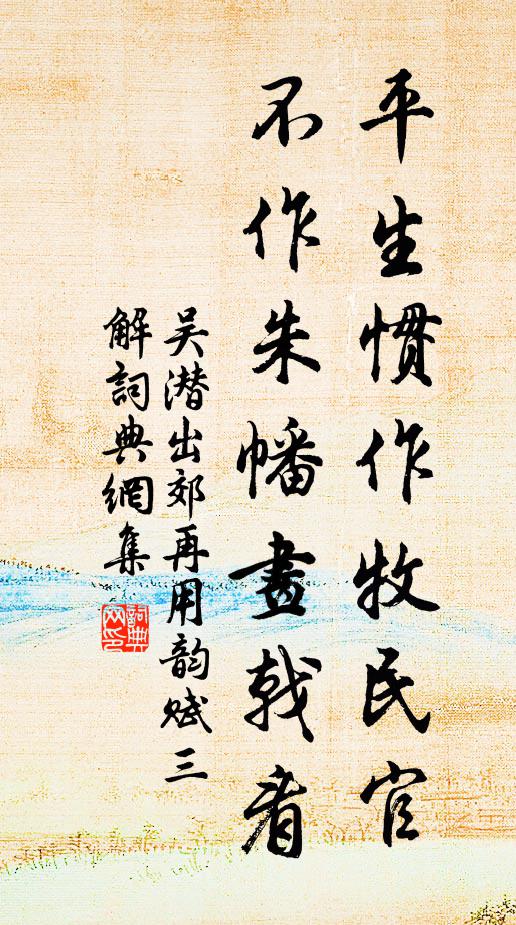 平生惯作牧民官
不作朱幡畫戟看
吴潜出郊再用韵赋三
解詞典網集
詞典